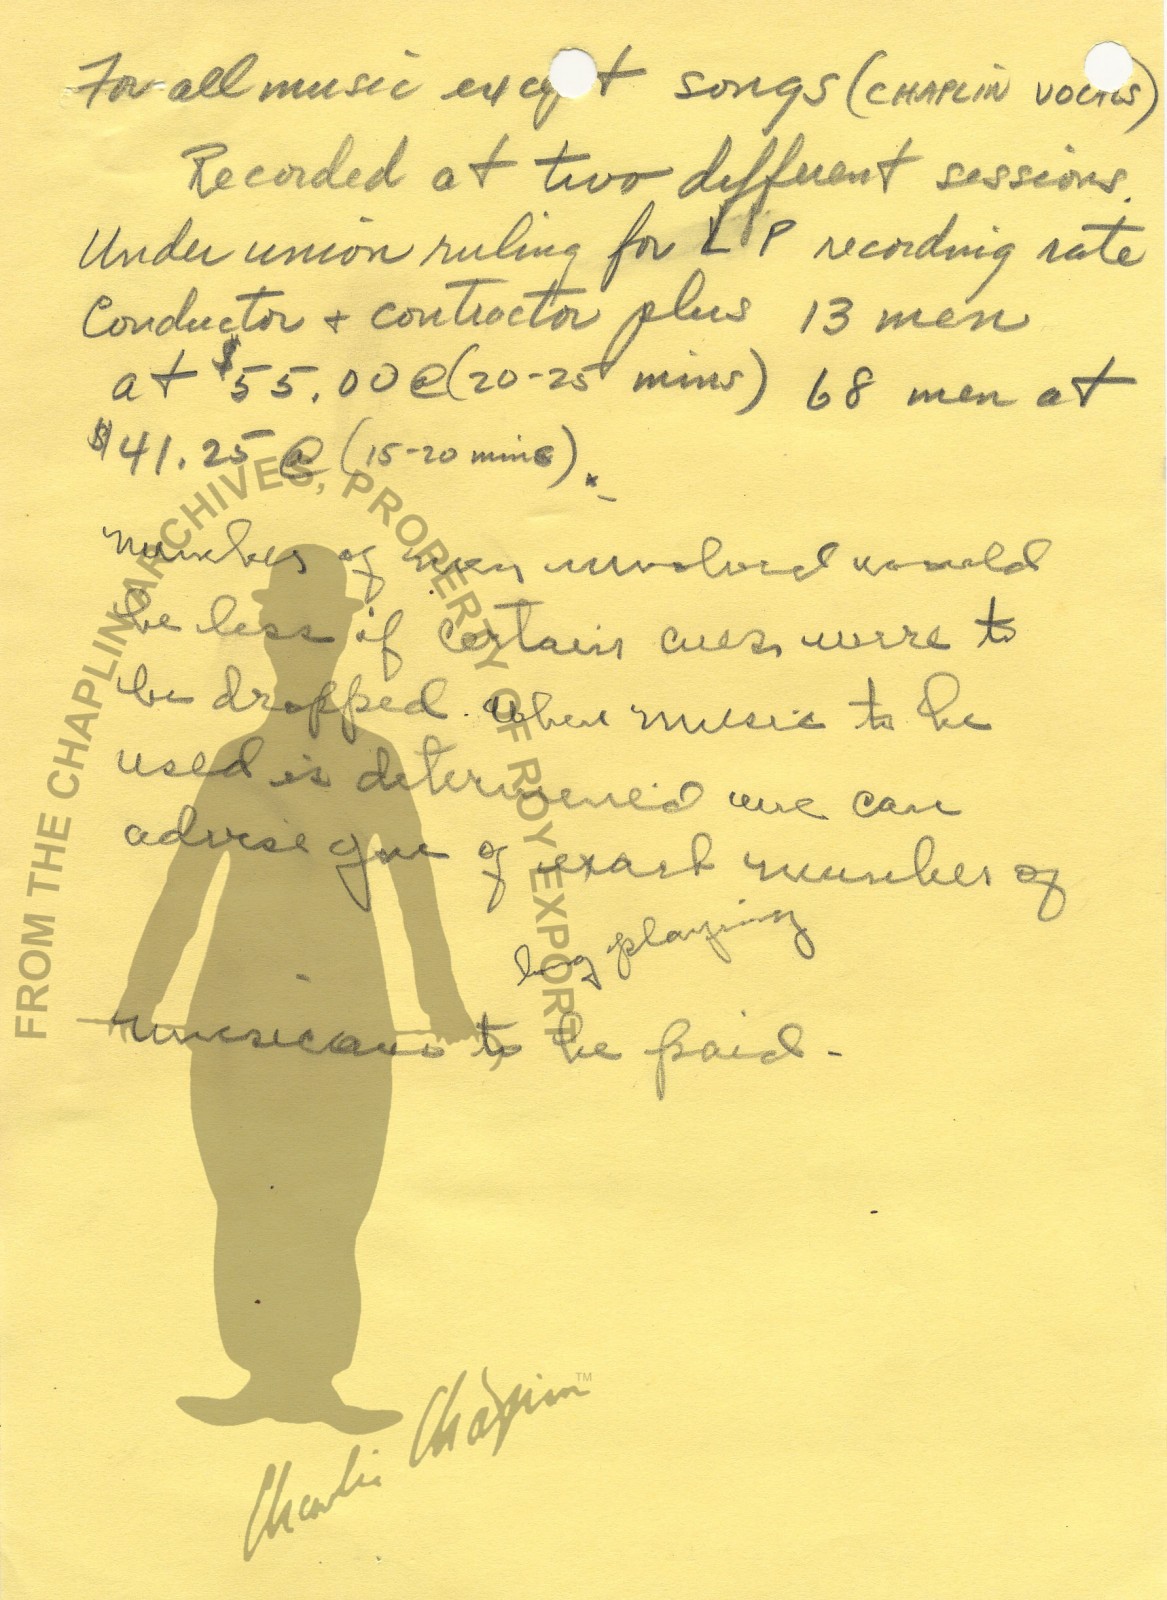 For all music except songs (CHAPLIN VOCALS)
Recorded at two different sessions.
Under union ruling for LP recording rate
Conductor + contractor plus 13 men
at $55.00 @ (20-25 mins) 68 men at
$41.25 @ (15-20 mins).
number of men involved would
be less if certain cues were to
be dropped. When music to be
used is determined we can
advise you of exact number of
long playing
musicians to be paid -
FROM THE CHAPLIN ARCHIVES, PROPERTY OF ROY EXPORT
Charlie Chaplin TM